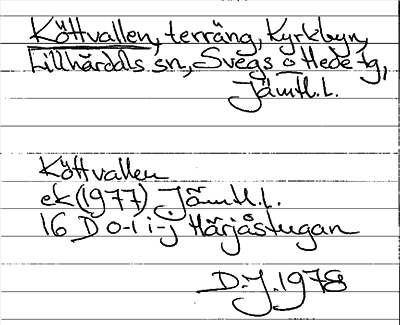 Köttvallen, terräng, Kyrkbyn,
Lillhärdals sn, Svegs o Hede tg,
Jämtl. L.
Köttvallen
ek (1977) Jämtl. L.
16 D o-1 i-j Härjåstugan
D.J. 1978